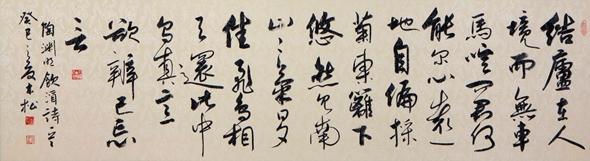 結廬在人
境而無車
馬喧問君何
能尔心遠
地自偏採
菊東籬下
悠然見南
山々氣日夕
佳飛鳥相
与還此中
有真意
欲辨已忘
言
陶渊明飲酒詩一首
癸巳之夏木松